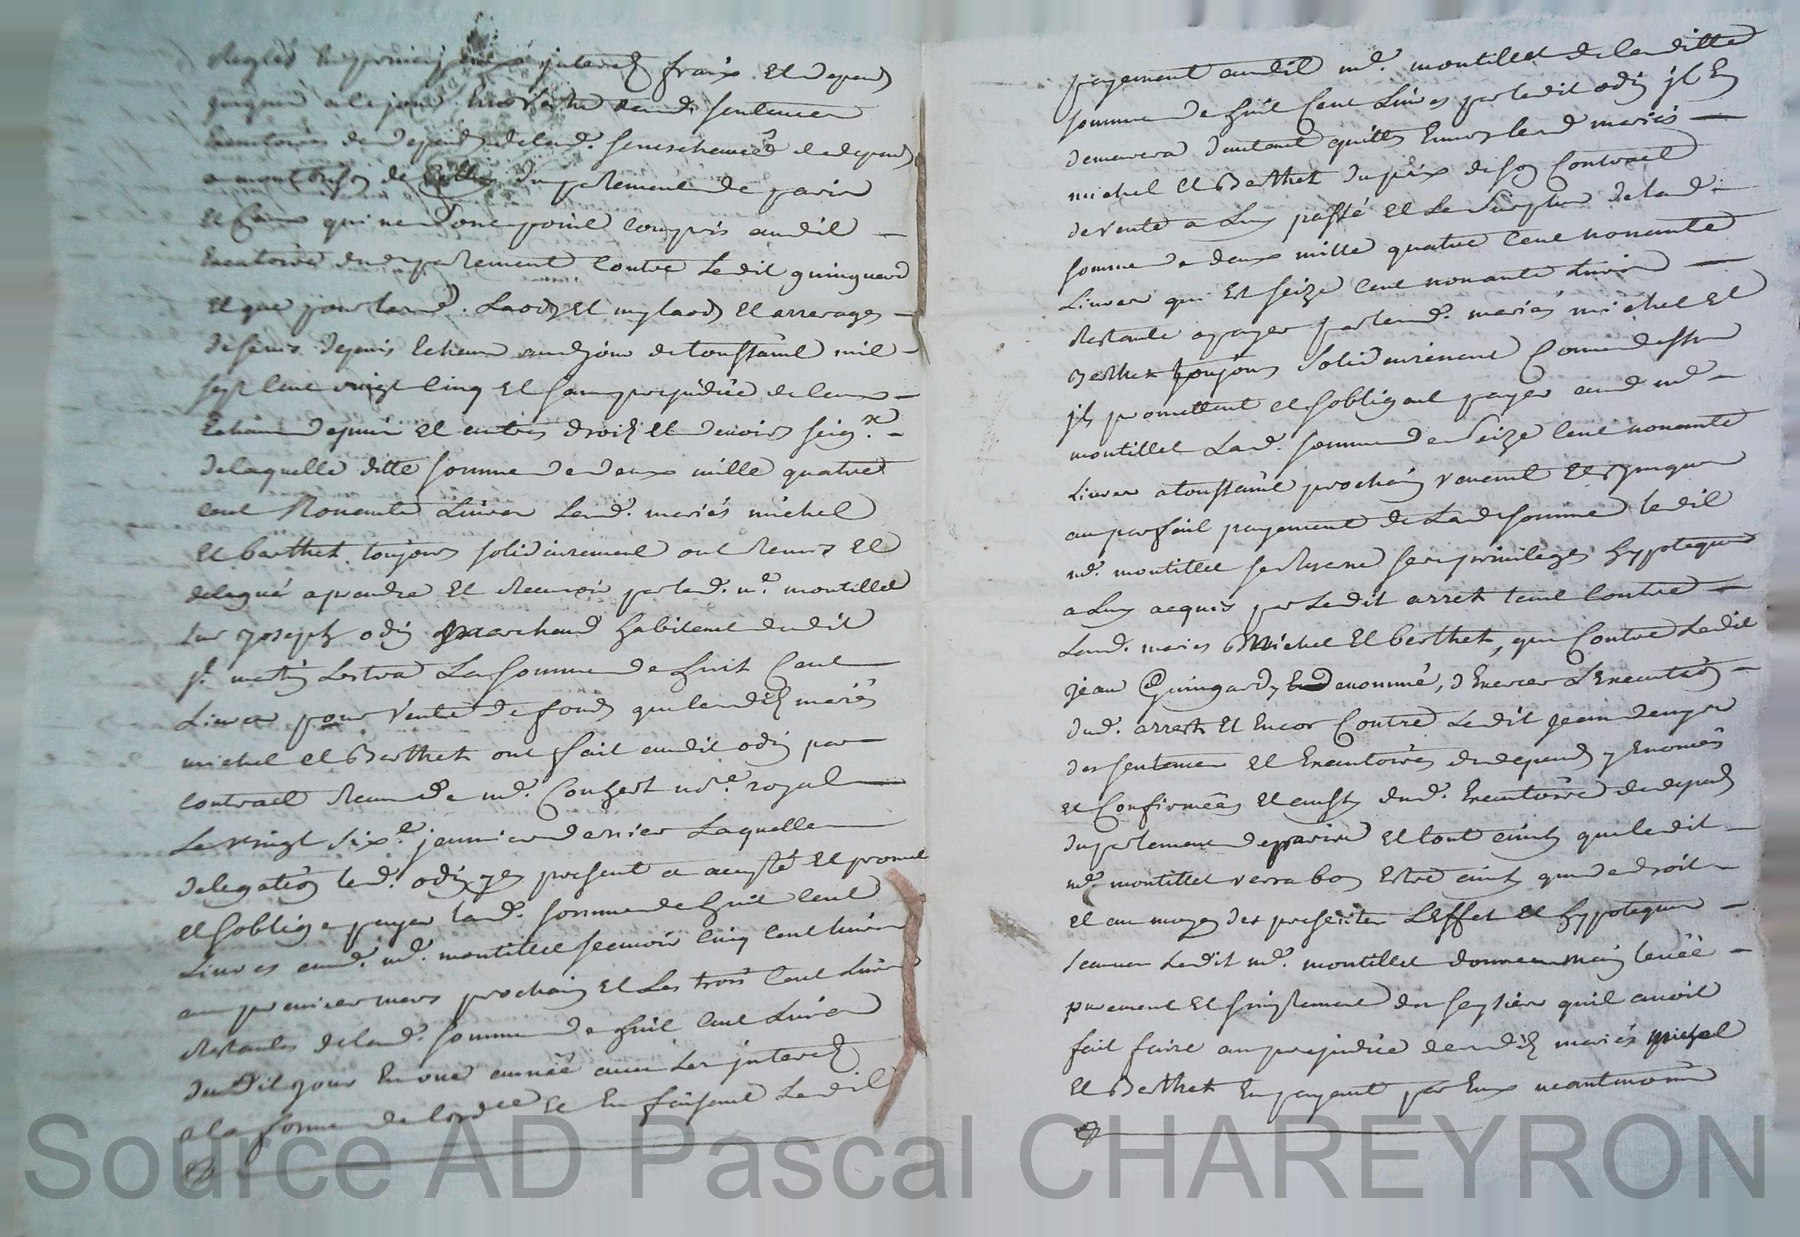 reglés en principal interetz fraix et depens
jusques a ce jour sentence
executoires de depends de la d. seneschaucée et depends
du parlement de paris
et ceux qui ne sont point compris audit
executoire du d parlement contre ledit guinguard
et que pour le d. laods et mylaods et arrerages
de servis depuis echeus au d jour de toussaint mil
sept cent vingt cinq et sans prejudice de ceux
echeus depuis et autres droits et devoirs seig.x
de laquelle ditte somme de deux mille quatre
cent Nonante Livres les d. mariés michel
et berthet toujours solidairement ont remis et
delegué a prendre et recevoir par le d. m.e montillet
sur joseph odin marchand habitant du dit
st. Lestra La somme de huit Cent
Livres pour vente de fonds que lesdits mariés
michel et Berthet ont fait audit odin par
contract receu de me. Conhert nore. royal
Le vingt six.e janvier dernier Laquelle
delegation le d. odin present a acepté et promet
et soblige payer la d. somme de huit cent
Livres au d. me. montillet scavoir cinq cent livres
au premier mars prochain et Les trois Cent Livres
restantes de la d. somme de huit cent Livres
dudit jour en une année avec Les interetz
a la forme de lorde et En faisant Le dit
payement audit me. montillet de la ditte
somme de huit Cent Livres par ledit odin il En
demeurera d'autant quitte Envers les d mariés
michel et Berthet du prix de son Contract
de vente a Luy passé et Le Surplus de la d.
somme de deux mille quatre cent nonante
Livres qui Est seize cent nonante Livres
Restante a payer par les d. mariés michel et
Berthet toujours Solidairement Comme dessus
ils promettent et sobligent payer au d me.
montillet La d. somme de Seize cent nonante
Livres a toussaint prochain venant et jusques
au parfait payement de La de somme le dit
me. montillet se Reserve ses privileges hypoteques
a Luy acquis par Ledit arrest tant Contre
Les d. mariés Michel Et berthet, que Contre Ledit
jean Guingard, denommé, d'Exercer L'Execution
du d. arrest Et Encor Contre Ledit jean
des sentences et Executoires de depends y Enoncés
et Confirmées et aussy du d. Executoire de depends
du parlement de paris et tout ainsy que ledit
me. montillet verra bon Estre ainsy que de droit
et au moyen des presentes L'Effet et hypoteques
Ledit me. montillet donne main levée
purement et simplement des saysies quil avoit
fait faire au prejudice desdits mariés michel
Et Berthet En payant par Eux neantmoins
Source AD Pascal CHAREYRON